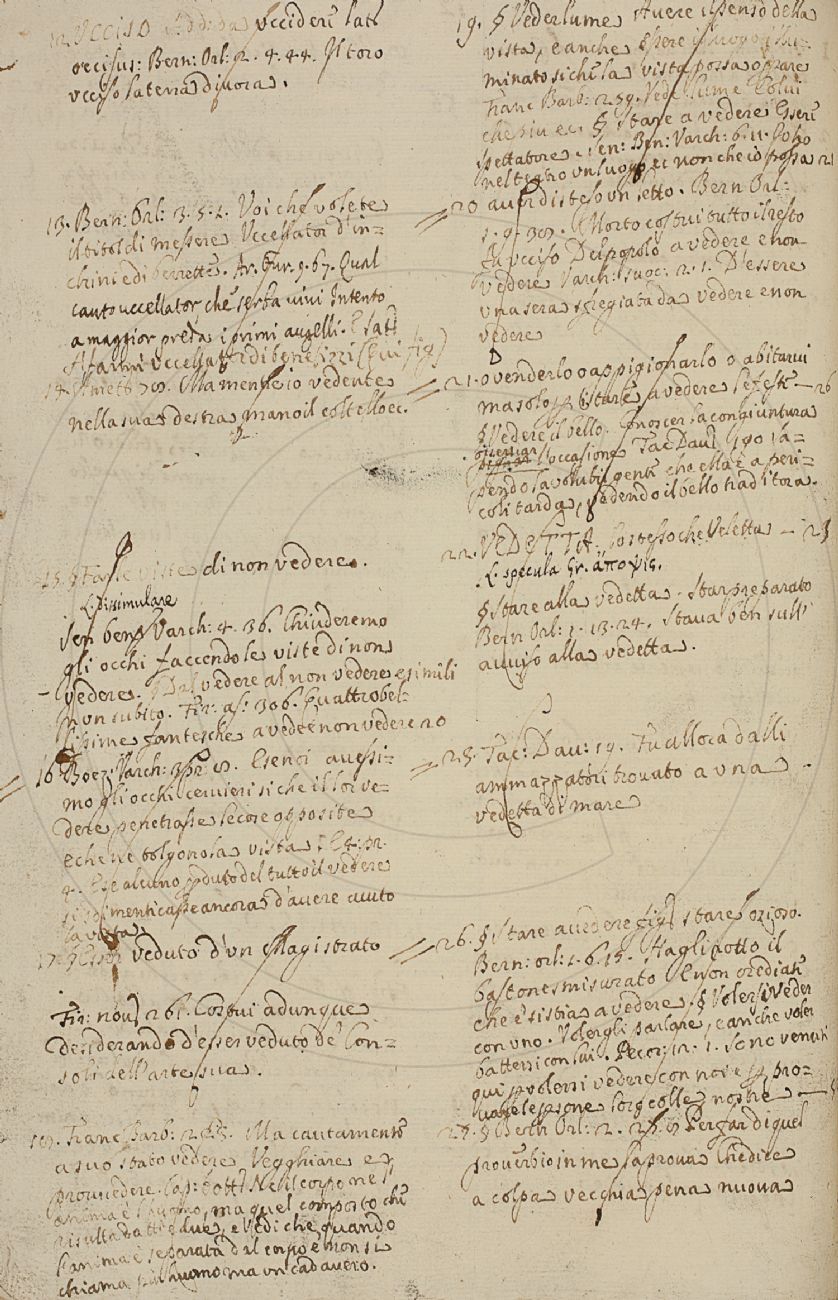 12. UCCISO Add: da uccidere lat:
occisus: Bern: Orl: 2. 4. 44. Il toro
ucciso la terra divora.
13. Bern: Orl: 3. 5. 1. Voi che volete
il titol di messere Uccellator d'in=
chini e di berrette. Ar. Fur. 9. 67. Qual
cauto uccellator che serba vivi Intento
a maggior preda i primi augelli. E
uccellator di benefizzi
14. Ma mentre io vedente
nella sua destra mano il coltello ec.
15. § Fare viste di non vedere.
L. Dissimulare
Sen ben: Varch: 4. 36. Chiuderemo
gli occhi faccendo le viste di non
vedere. Dal vedere al non vedere e simili
in un subito. Fir: as: 306. Quattro bel=
lissime fantesche a vedere e non vedere 20
16. Boez. Varch: Esendi avessi=
mo gli occhi cervieri sicche il lor ve=
dere penetrasse le cose opposite
E che ne tolgono la vista
2. E se alcuno perduto del tutto il vedere
si dimenticasse ancora d'avere avuto
la vista.
17. § Esser veduto d'un Magistrato
Fir: nov: 261. Costui adunque
desiderando d'esser veduto de' Con=
soli dell'arte sua.
Franc: Barb: Ma cautamente
a suo stato vedere Vegghiare e
provvedere. Nel corpo ne l'
anima è l'huomo, ma quel composto che
risulta d'atti e due, e vedi che quando
l'anima è separata dal corpo, e' non si
chiama più huomo ma un cadavero.
19. § Veder lume Avere il senso della
vista, e anche essere il luogo illu=
minato sicche la vista possa oprare
Franc Barb: 259. Vede lume Colui
che piu ec. § Stare a vedere Essere
spettatore. Sen: Ben: Varch: 6. 11. Solo
nel teatro un luogo, ec non che io possa 21
20 aver disteso un letto. Bern Orl:
1. 9. 30. Morto costui tutto il resto
fu ucciso Del popolo a vedere e non
vedere Varch: Suoc: 2. 1. D'essere
una sera sfregiata da vedere e non
vedere
21. o venderlo o appigionarlo o abitarvi
ma solo per istare a vedere le feste — 26
§ Vedere il bello. Conoscer la congiuntura
osservar l'occasione Tac Dav:
pendo la volubil gente che ella è a peri=
coli tarda, vedendo il bello traditora.
22. VEDETTA. Lo stesso che Veletta — 23
L. specula Gr. ἄποψις.
§ Stare alla vedetta. Star preparato
Bern Orl: 1. 13. 24. Stava ben sull'
avviso alla vedetta.
23. Tac: Dav: 19. Fu allora dalli
ammazzatori trovato a una
vedetta di mare
26. § Stare a vedere fig: stare ozioso.
Bern: orl: 1. 6. 15. Tagliò sotto il
baston smisurato E non crediate
che e' si stia a vedere. § Volersi veder
con uno. Volergli parlare, e anche voler
battersi con lui. Pecor: 12. 1. Sono venuti
qui per volersi vedere con noi e per pro=
vare le persone loro colle nostre —
§ Bern Orl: 2. Per far di quel
proverbio in me la prova Che dice
a colpa vecchia pena nuova